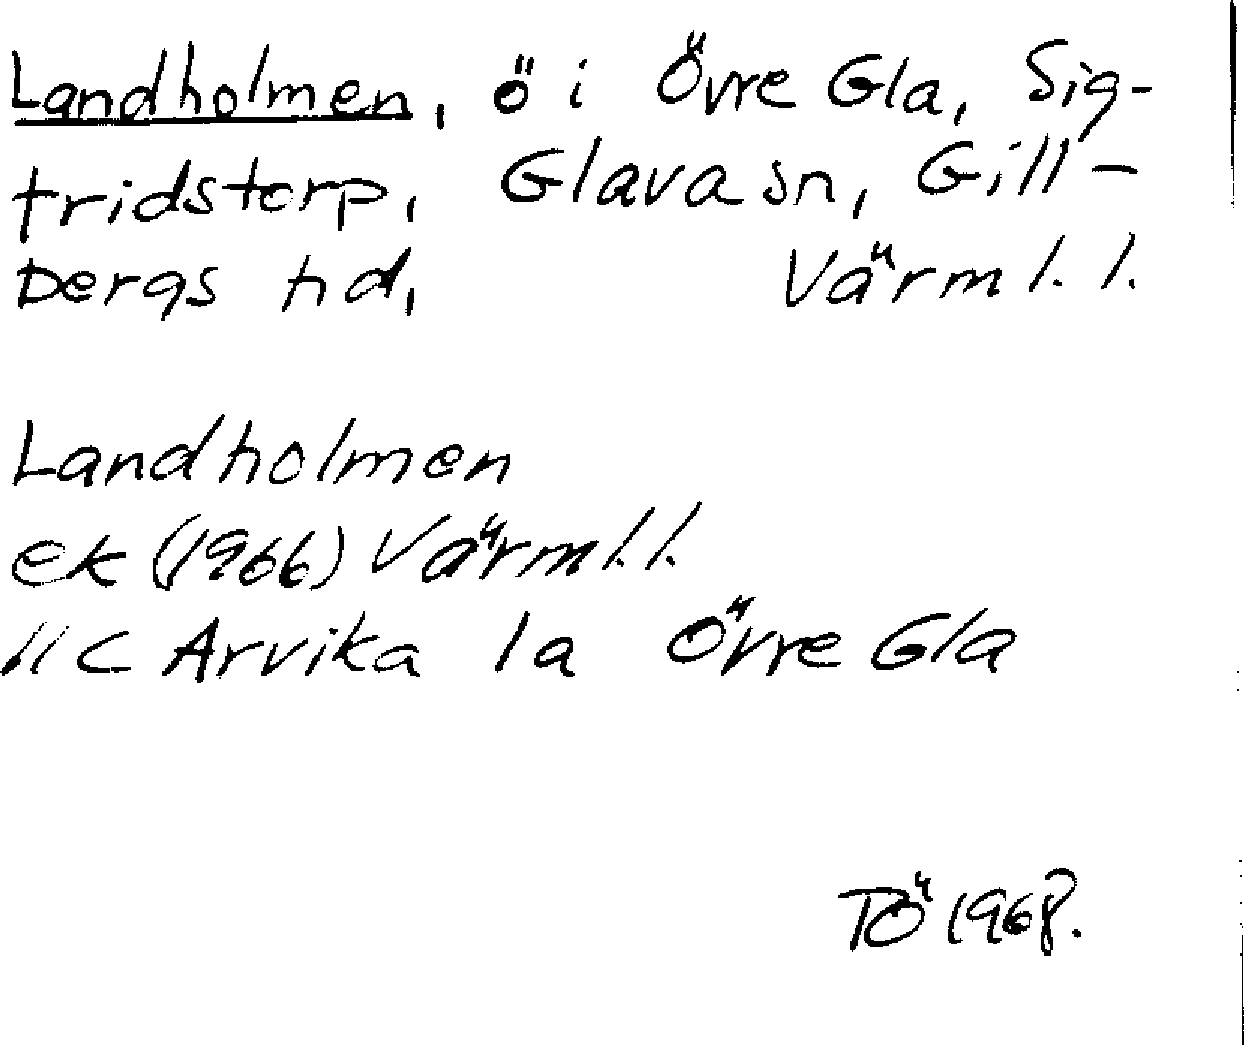 Landholmen, ö i Övre Gla, Sig-
fridstorp, Glava sn, Gill-
bergs hd, Värml. l.
Landholmen
ek (1966) Värml. l.
11 C Arvika 1a Övre Gla
TÖ 1968.